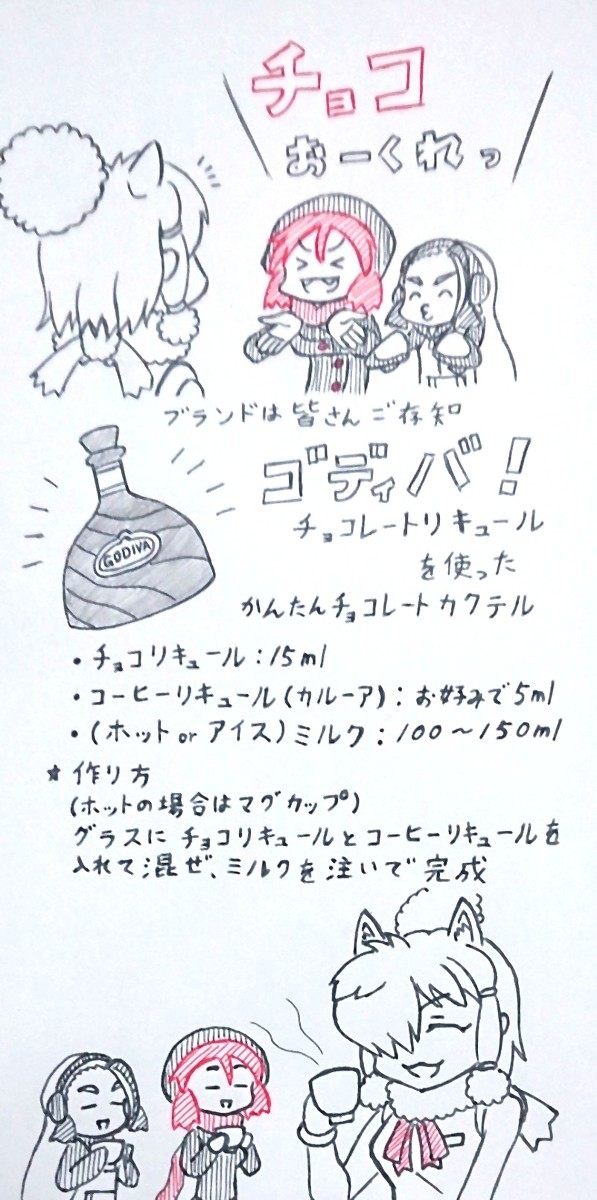 チョコ
おーくれっ
ブランドは皆さんご存知
ゴディバ!
GODIVA
チョコレートリキュール
を使った
かんたんチョコレートカクテル
・チョコリキュール:15ml
・コーヒーリキュール(カルーア):お好みで5ml
・(ホット or アイス)ミルク:100～150ml
☆作り方
(ホットの場合はマグカップ)
グラスにチョコリキュールとコーヒーリキュールを
入れて混ぜ、ミルクを注いで完成